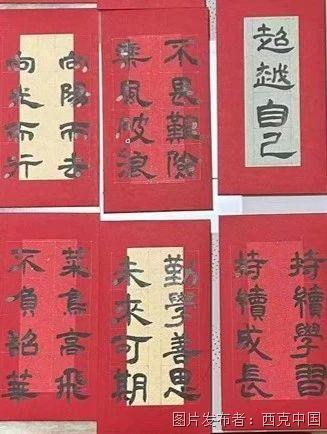 向陽而去
向光而行
不畏艱險
乘風破浪
超越自己
菜鳥高飛
不負韶華
勤學善思
未來可期
持續學習
持續成長
图片发布者：西克中国